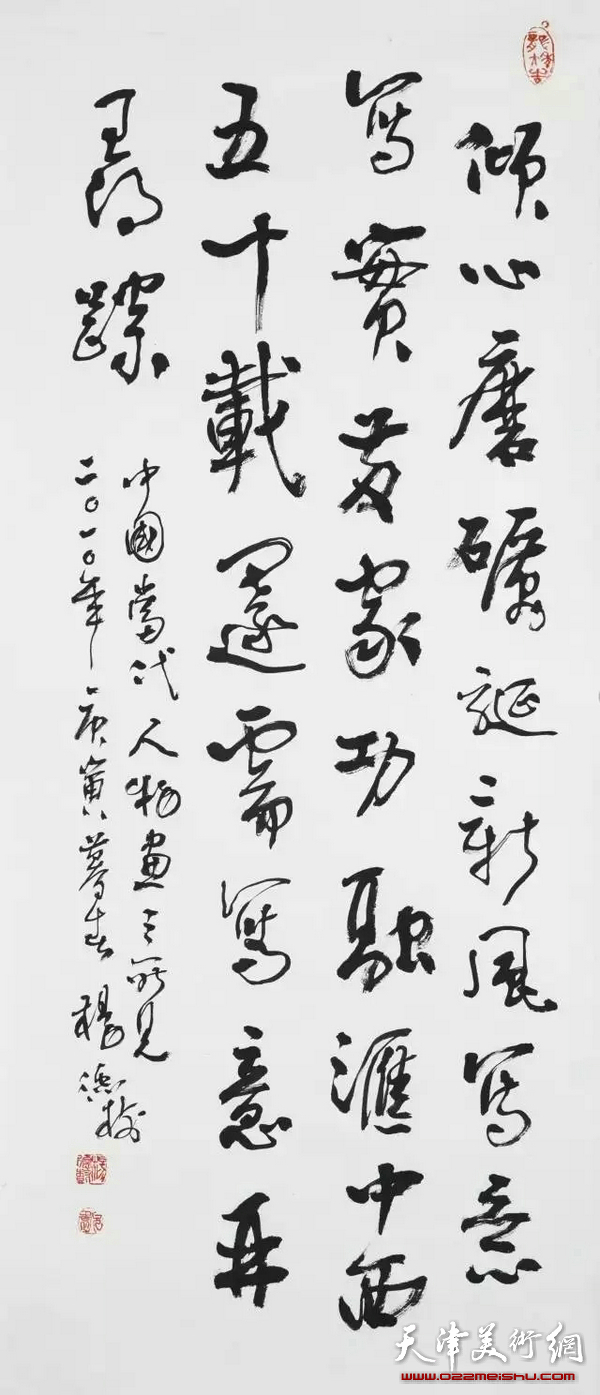 傾心磨礪誕新風寫意
寫實家功融滙中西
五十載還需寫意再
尋蹤
中國當代人物畫之所見
二〇一〇年庚寅暮春楊德樹
天津美術網
www.022meishu.com